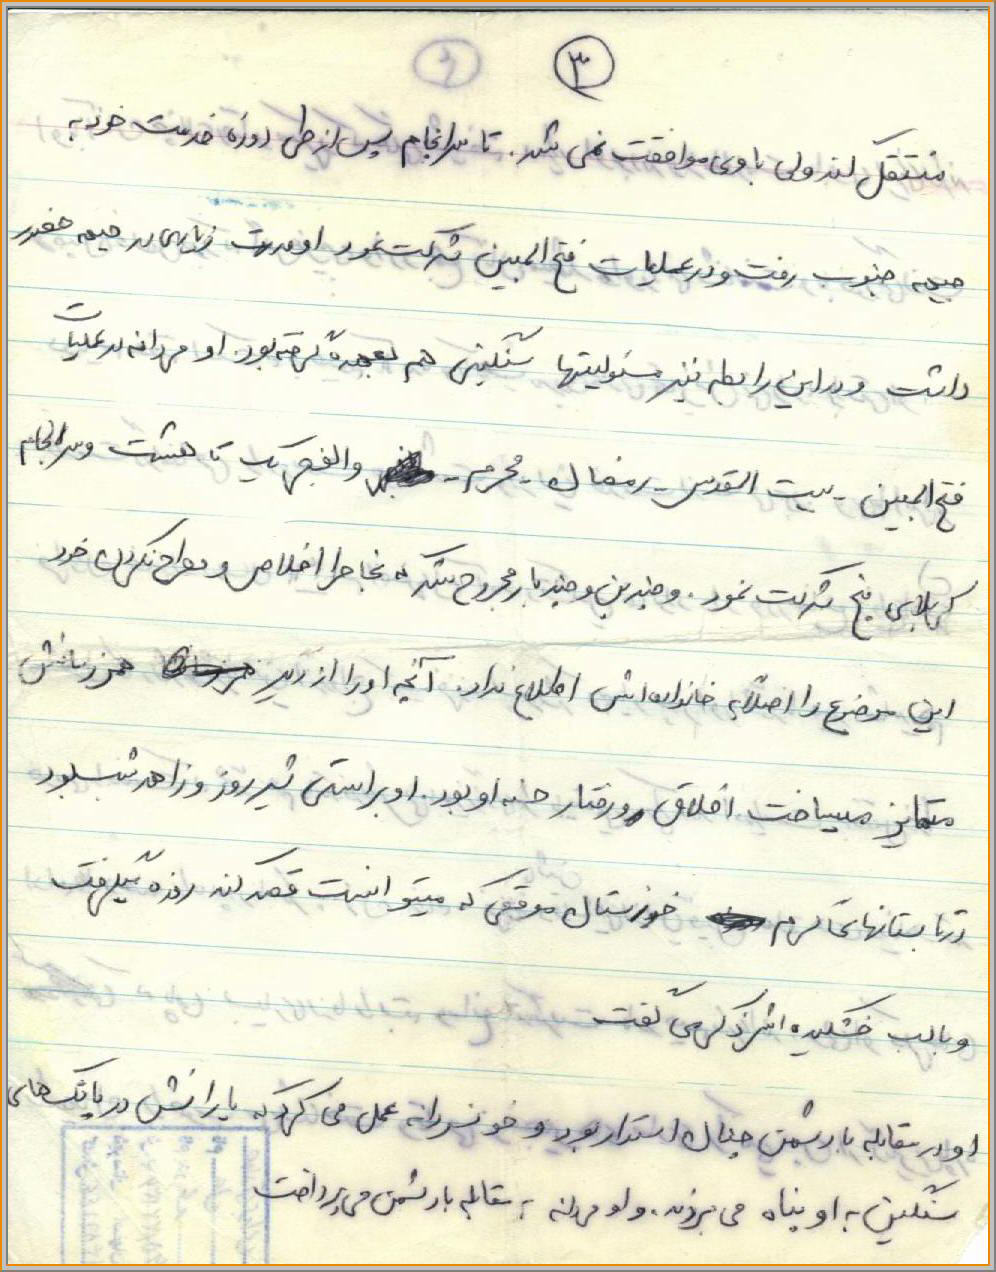 ۳
منتقل کند ولی با وی موافقت نمی شد. تا سرانجام پس از طی دوره خدمت خود به
جبهه جنوب رفت و در عملیات فتح المبین شرکت نمود او مدت زیادی در جبهه حضور
داشت و در این رابطه نیز مسئولیتها سنگینی هم بعهده گرفته بود. او مردانه در عملیات
فتح المبین - بیت المقدس - رمضان - محرم - والفجر یک تا هشت و سرانجام
کربلای پنج شرکت نمود. و چندین و چند بار مجروح شد که بخاطر اخلاص و مطرح نکردن خود
این موضوع را اصلا به خانواده اش اطلاع نداد. آنچه او را از دیگر همرزمانش
متمایز میساخت اخلاق و رفتار حسنه او بود. او براستی شیر روز و زاهد شب بود
در تابستانهای گرم خوزستان موقعی که میتوانست قصد کند روزه میگرفت
و با لب خشکیده اش ذکر می گفت
او در مقابله با دشمن چنان استوار بود و خونسردانه عمل می کرد که یارانش در پاتک های
سنگین به او پناه می بردند. و او مردانه به مقابله با دشمن می پرداخت